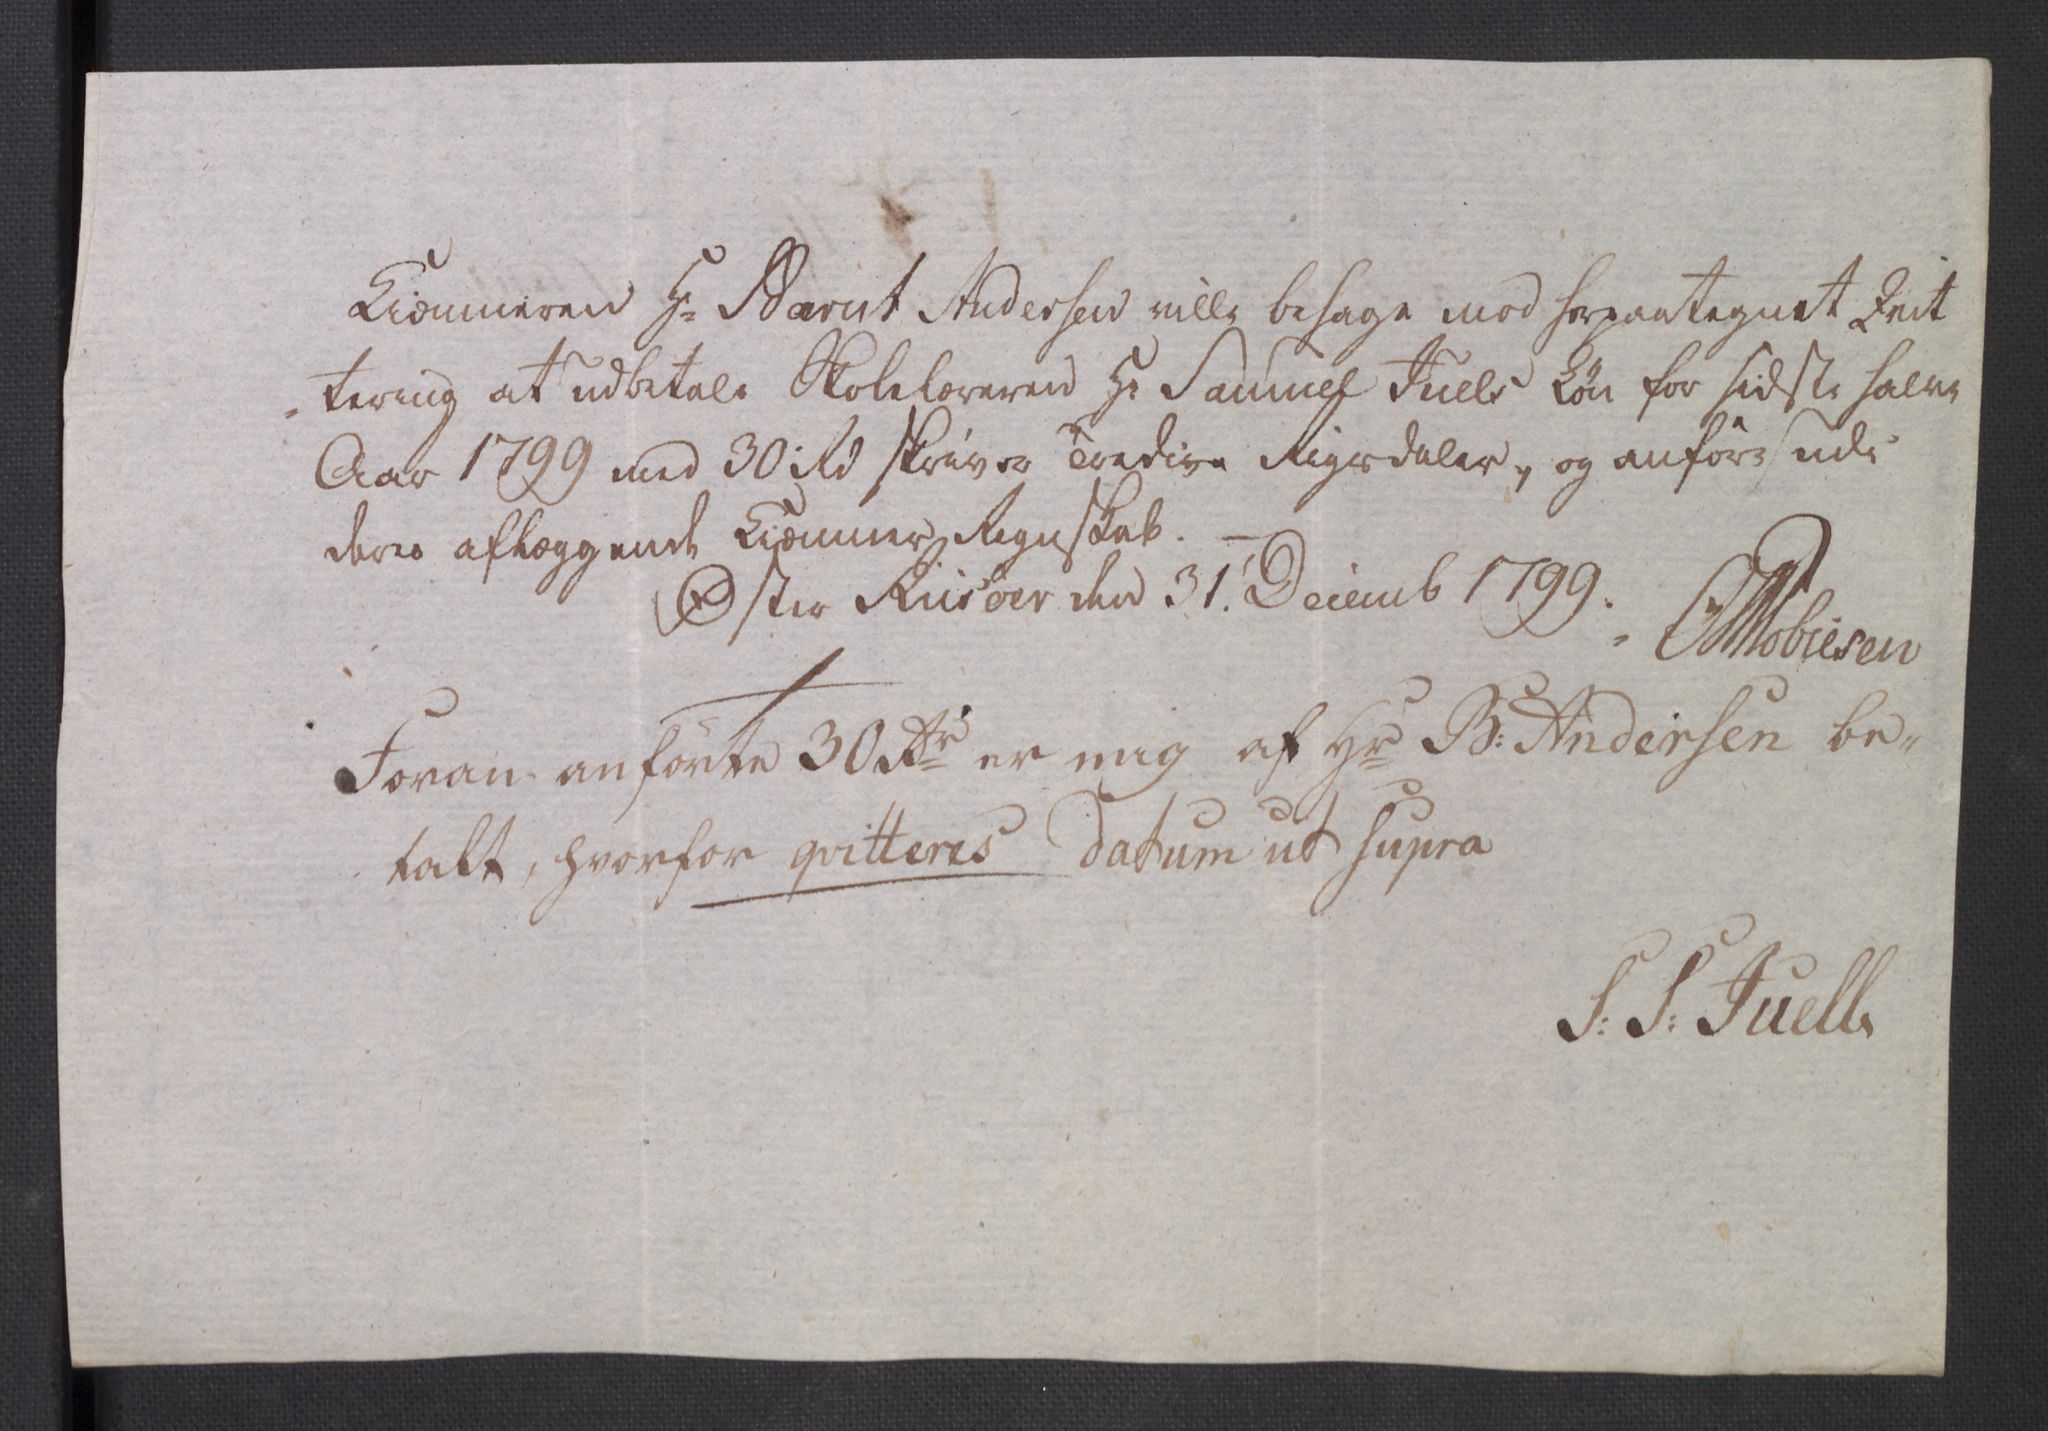 Kiæmneren Hr Barnt Andersen ville behage mod herpaategnet Qvit
tering at udbetale Skolelæreren Hr Samuel Juels Løn for sidste halve
Aar 1799 med 30 Rd skriver Tredive Rigsdaler, og anføres udi
deres aflæggende Kiæmner Regnskab. —
Øster Riisøer den 31. Decemb 1799.
Mobiesen
Foran anförte 30 Rdr er mig af Hr B: Andersen be-
talt, hvorfor qvitteres Datum ut supra
S: S: Juell